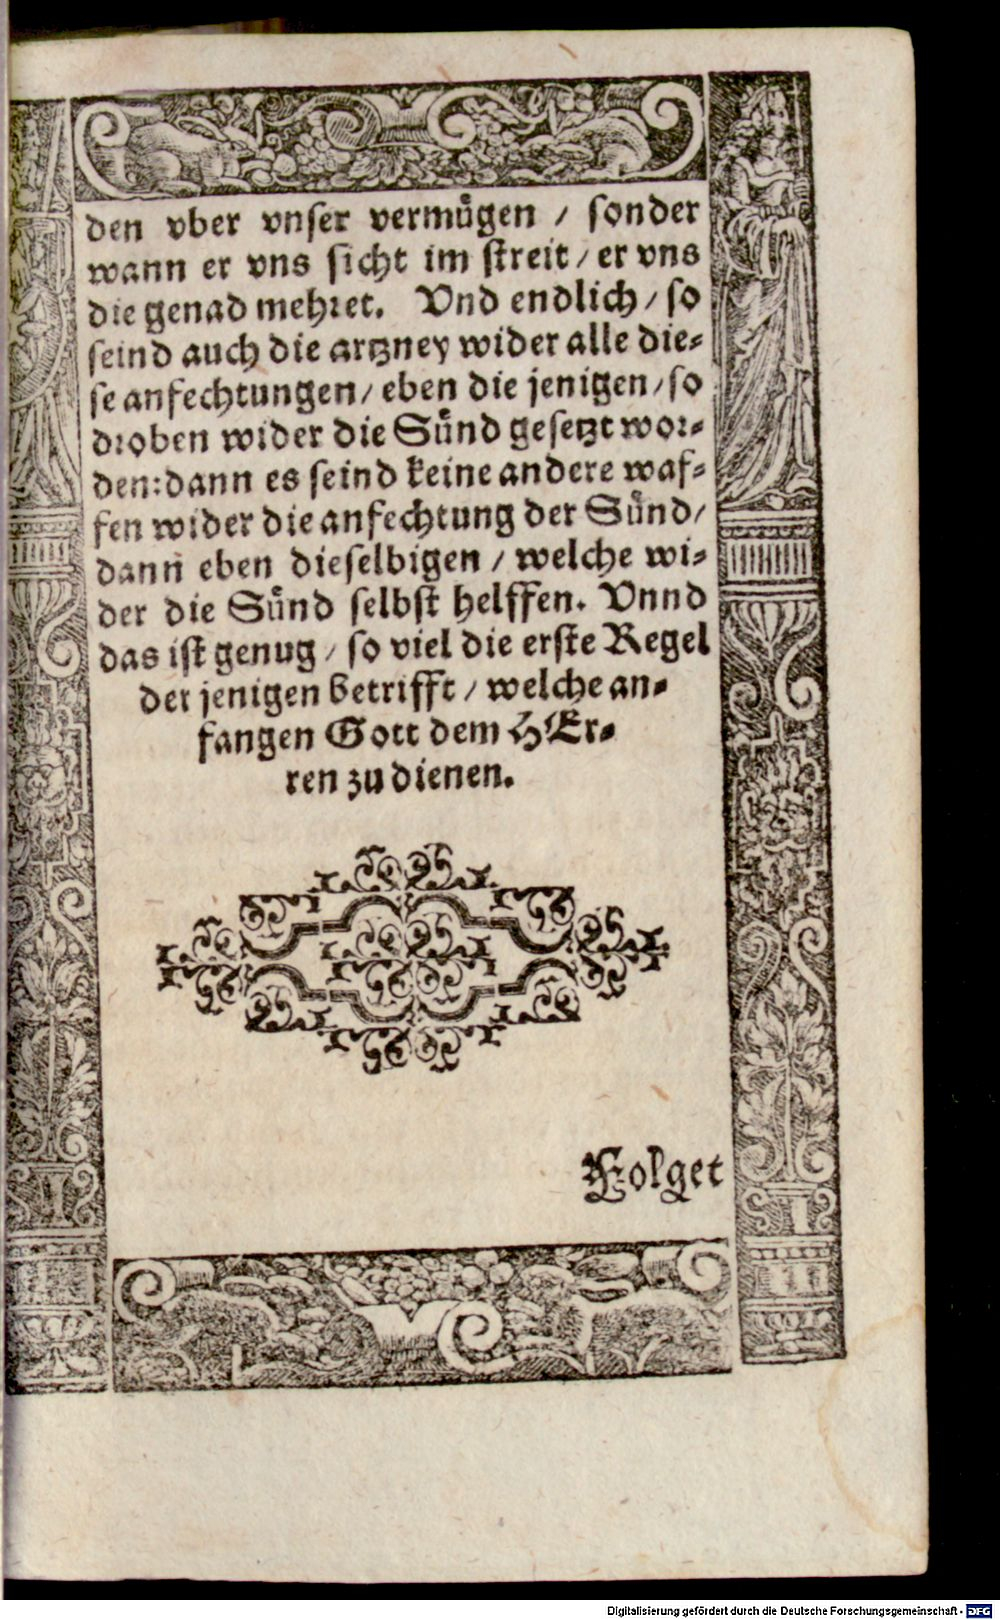 den vber vnser vermügen / sonder
wann er vns sicht im streit / er vns
die genad mehret. Vnd endlich / so
seind auch die artzney wider alle die-
se anfechtungen / eben die jenigen / so
droben wider die Sünd gesetzt wor-
den: dann es seind keine andere waf-
fen wider die anfechtung der Sünd /
dann eben dieselbigen / welche wi-
der die Sünd selbst helffen. Vnnd
das ist genug / so viel die erste Regel
der jenigen betrifft / welche an-
fangen Gott dem HEr-
ren zu dienen.
Folget
Digitalisierung gefördert durch die Deutsche Forschungsgemeinschaft - DFG